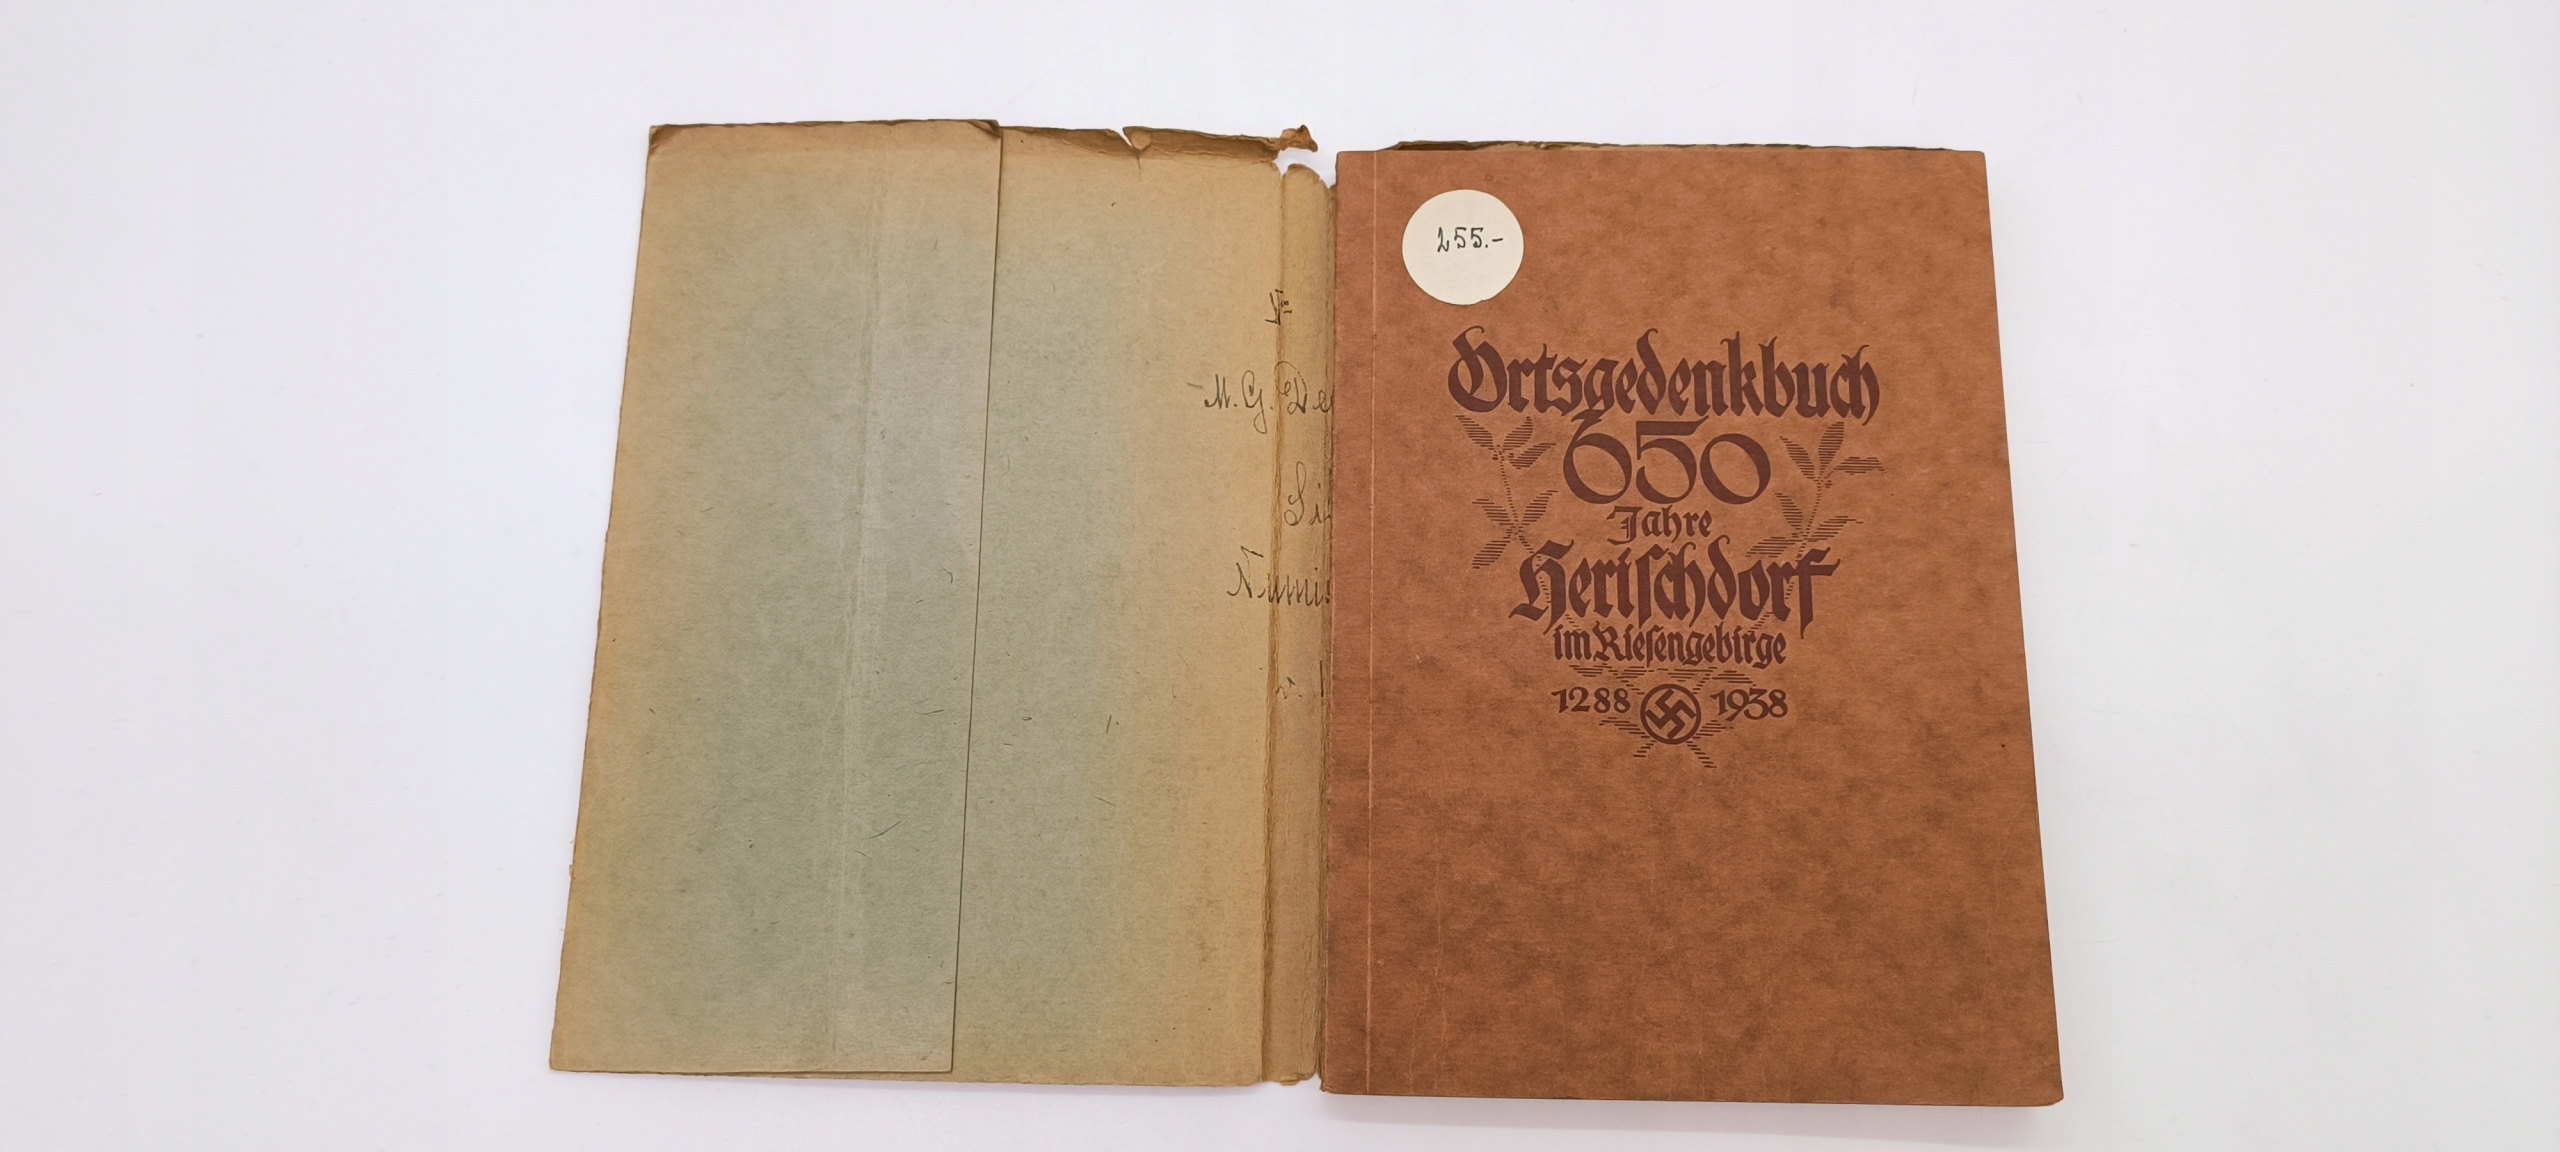 M. G.
255.-
Ortsgedenkbuch
650
Jahre
Herischdorf
im Riesengebirge
1288 1938